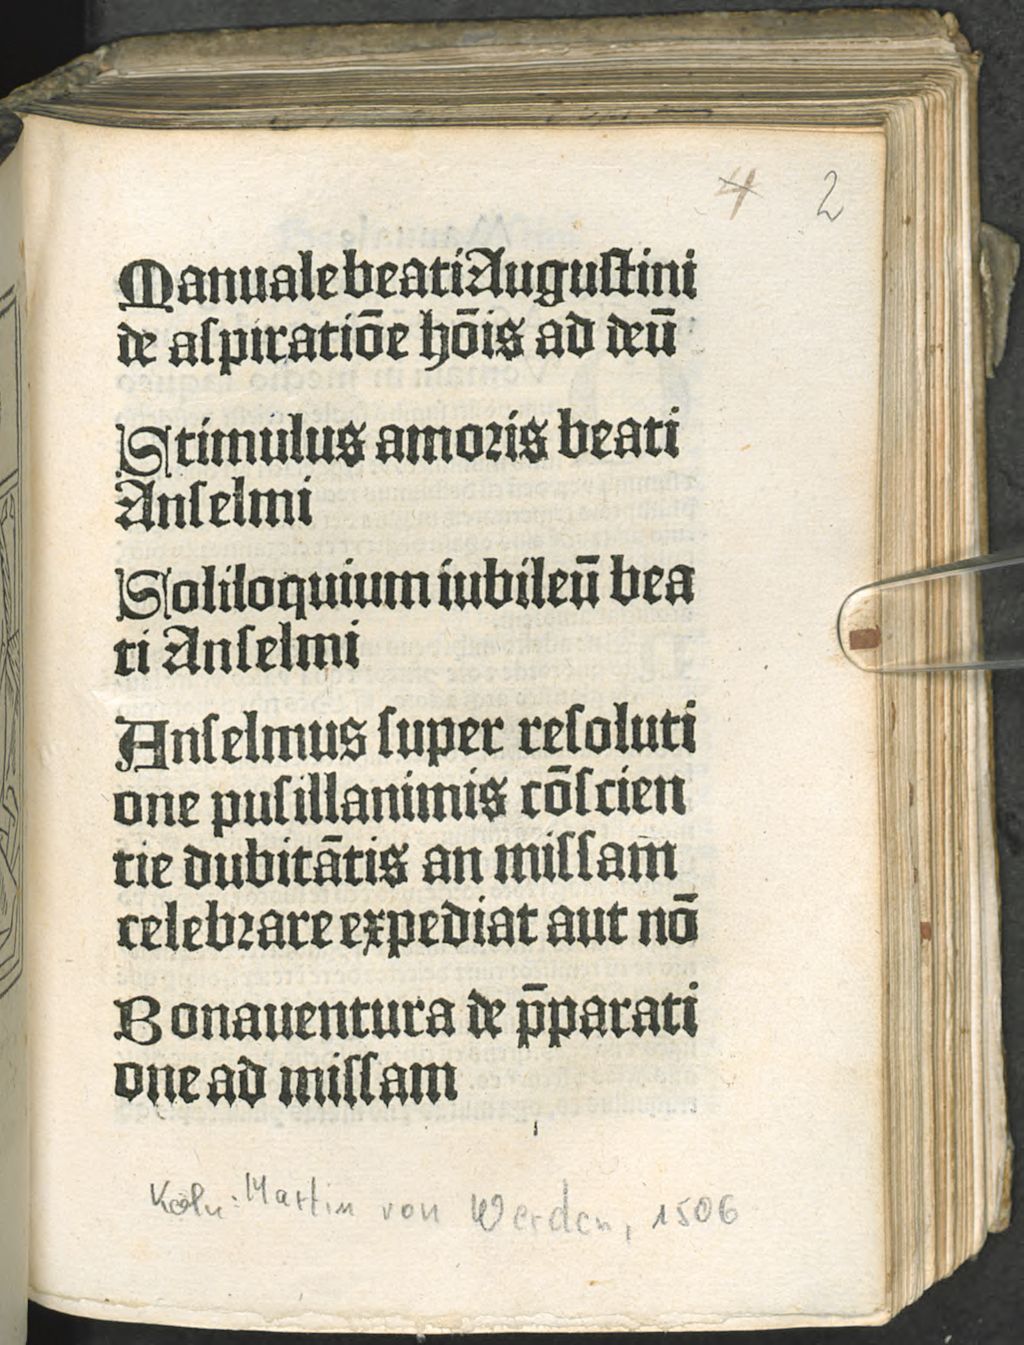 4 2
Manuale beati Augustini
de aſpiratiōe hōis ad deū
Stimulus amoris beati
Anſelmi
Soliloquium iubileū bea
ti Anſelmi
Anſelmus ſuper reſoluti
one puſillanimis cōſcien
tie dubitātis an miſſam
celebrare expediat aut nō
Bonauentura de p̄parati
one ad miſſam
Köln: Martin von Werden, 1506